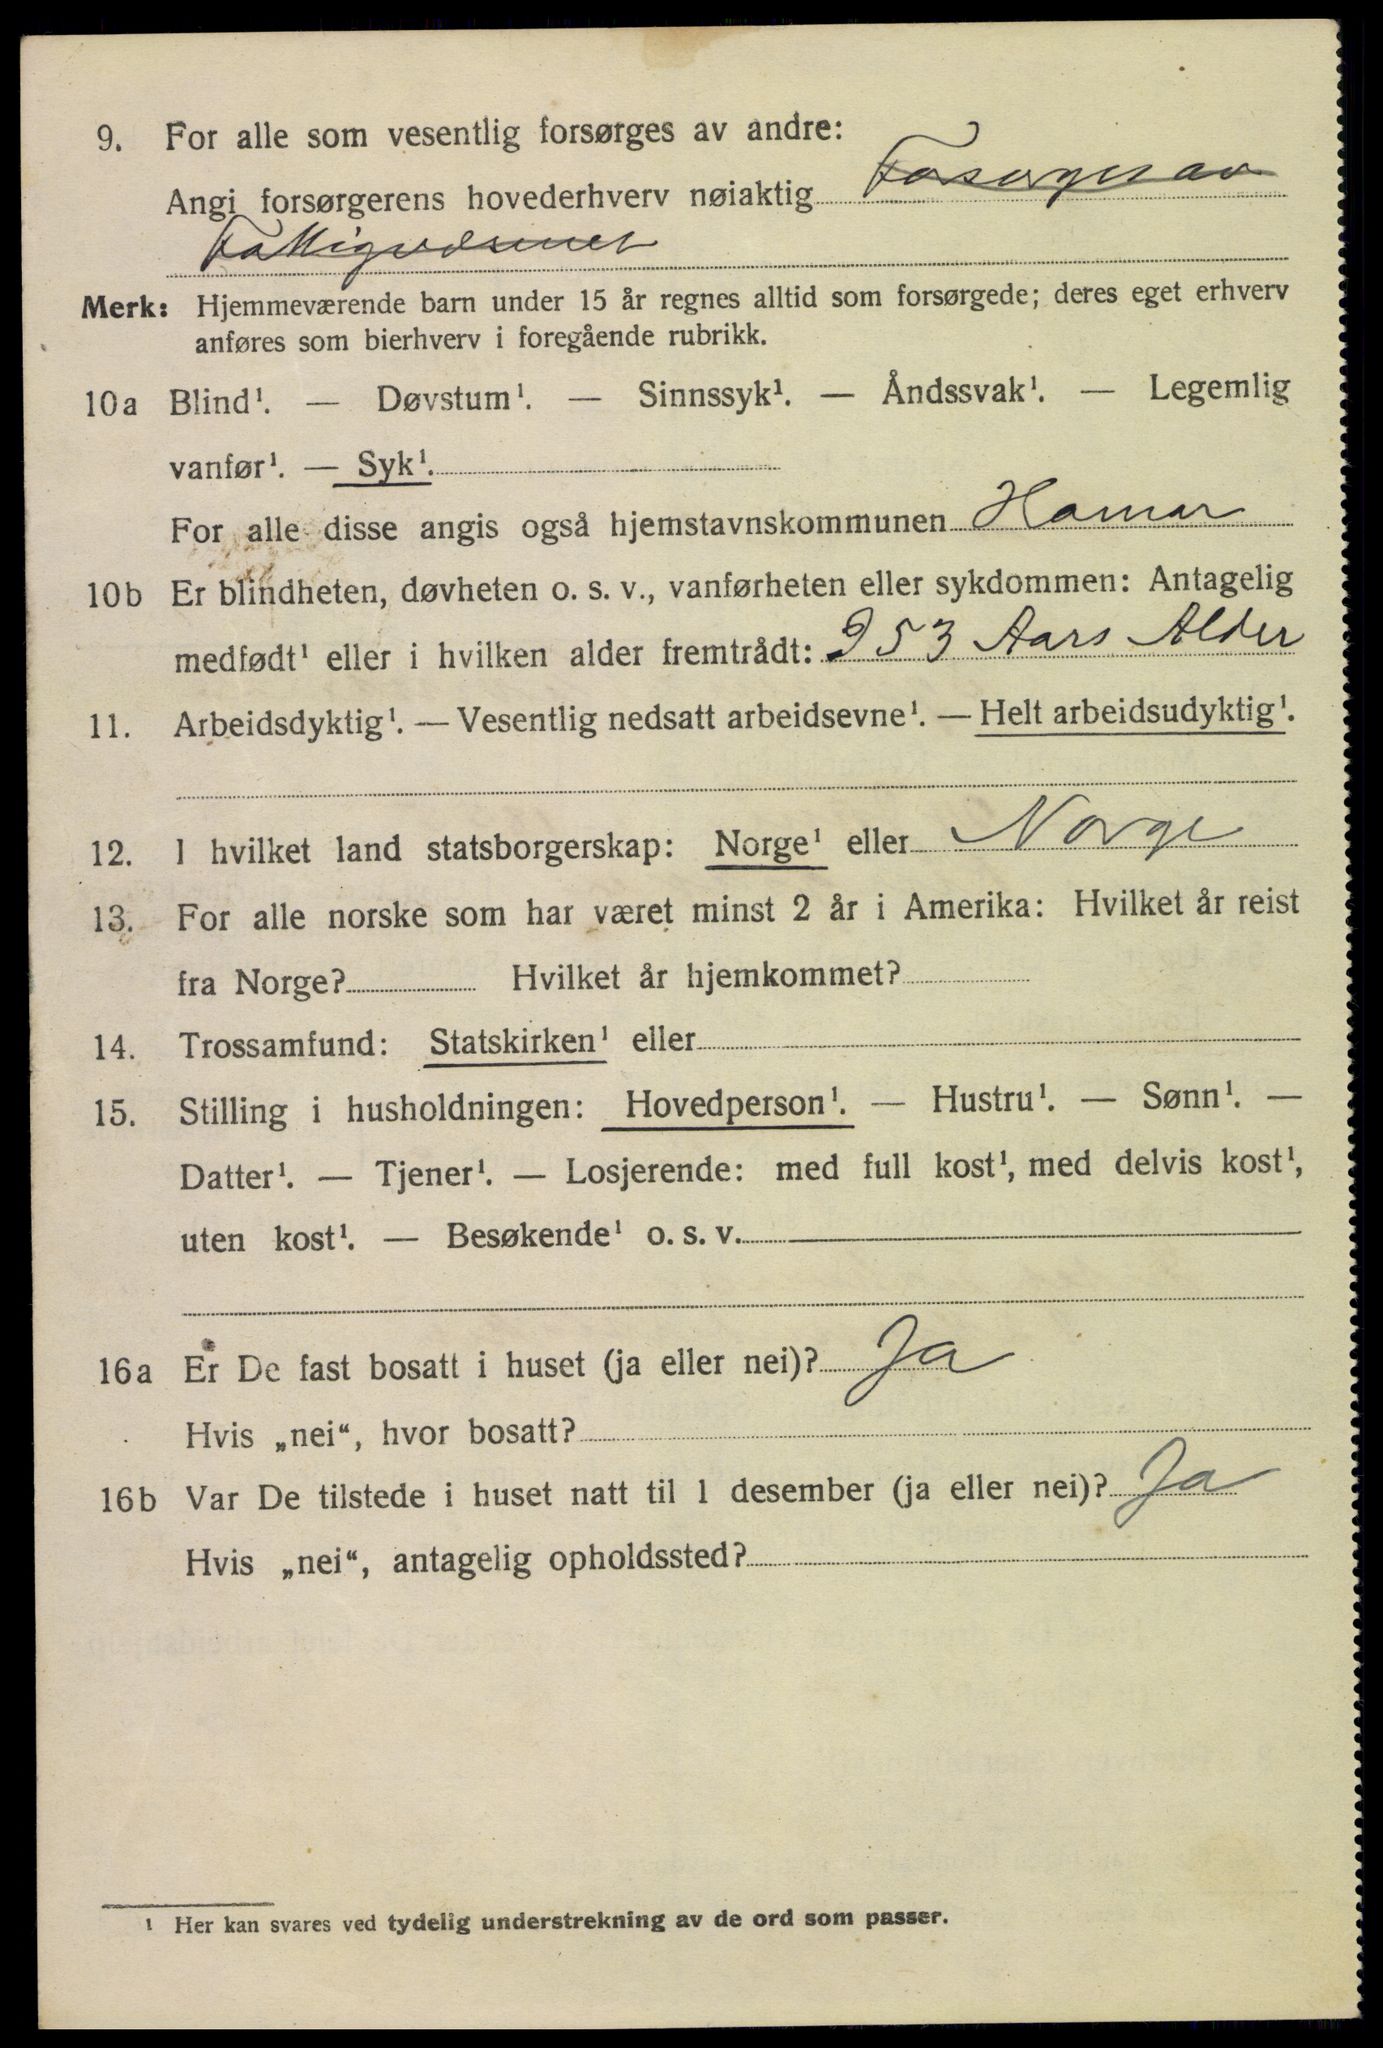 9. For alle som vesentlig forsørges av andre:
Angi forsørgerens hovederhverv nøiaktig Forsørges av
Fattigvæsenet
Merk: Hjemmeværende barn under 15 år regnes alltid som forsørgede; deres eget erhverv
anføres som bierhverv i foregående rubrikk.
10a Blind¹. — Døvstum¹. — Sinnssyk¹. — Åndssvak¹. — Legemlig
vanfør¹. — Syk¹.
For alle disse angis også hjemstavnskommunen Hamar
10b Er blindheten, døvheten o. s. v., vanførheten eller sykdommen: Antagelig
medfødt¹ eller i hvilken alder fremtrådt: I 53 Aars Alder
11. Arbeidsdyktig¹. — Vesentlig nedsatt arbeidsevne¹. — Helt arbeidsudyktig¹.
12. I hvilket land statsborgerskap: Norge¹ eller Norge
13. For alle norske som har været minst 2 år i Amerika: Hvilket år reist
fra Norge? Hvilket år hjemkommet?
14. Trossamfund: Statskirken¹ eller
15. Stilling i husholdningen: Hovedperson¹. — Hustru¹. — Sønn¹. —
Datter¹. — Tjener¹. — Losjerende: med full kost¹, med delvis kost¹,
uten kost¹. — Besøkende¹ o. s. v.
16a Er De fast bosatt i huset (ja eller nei)? Ja
Hvis „nei“, hvor bosatt?
16b Var De tilstede i huset natt til 1 desember (ja eller nei)? Ja
Hvis „nei“, antagelig opholdssted?
¹ Her kan svares ved tydelig understrekning av de ord som passer.